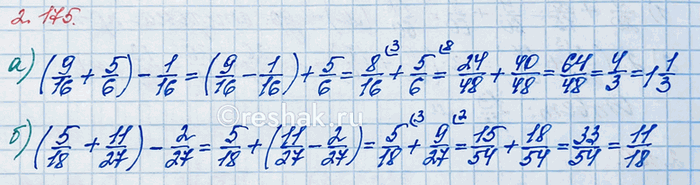 2.175.
а) (9/16 + 5/6) - 1/16 = (9/16 - 1/16) + 5/6 = 8/16 (3 + 5/6 (8 = 24/48 + 40/48 = 64/48 = 4/3 = 1 1/3
б) (5/18 + 11/27) - 2/27 = 5/18 + (11/27 - 2/27) = 5/18 (3 + 9/27 (2 = 15/54 + 18/54 = 33/54 = 11/18
©reshak.ru